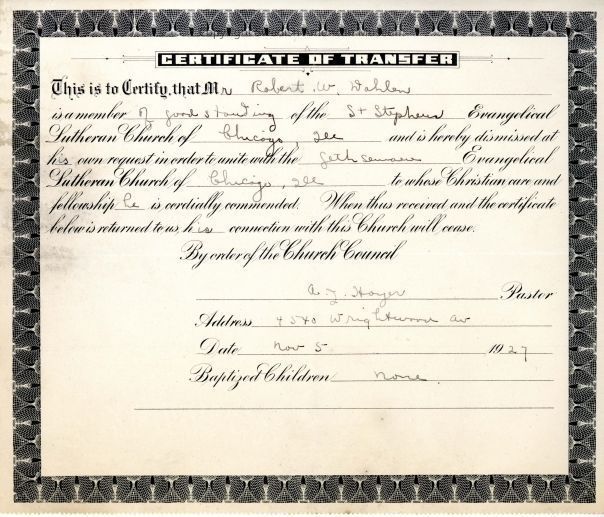 CERTIFICATE OF TRANSFER
This is to Certify, that Mr Robert W. Dahlen
is a member of good standing of the St Stephens Evangelical
Lutheran Church of Chicago, Ill and is hereby dismissed at
his own request in order to unite with the Gethsemane Evangelical
Lutheran Church of Chicago, Ill to whose Christian care and
fellowship he is cordially commended. When thus received and the certificate
below is returned to us, his connection with this Church will cease.
By order of the Church Council
A Pastor
Address 4540 Wrightwood Av
Date Nov 5 1927
Baptized Children None